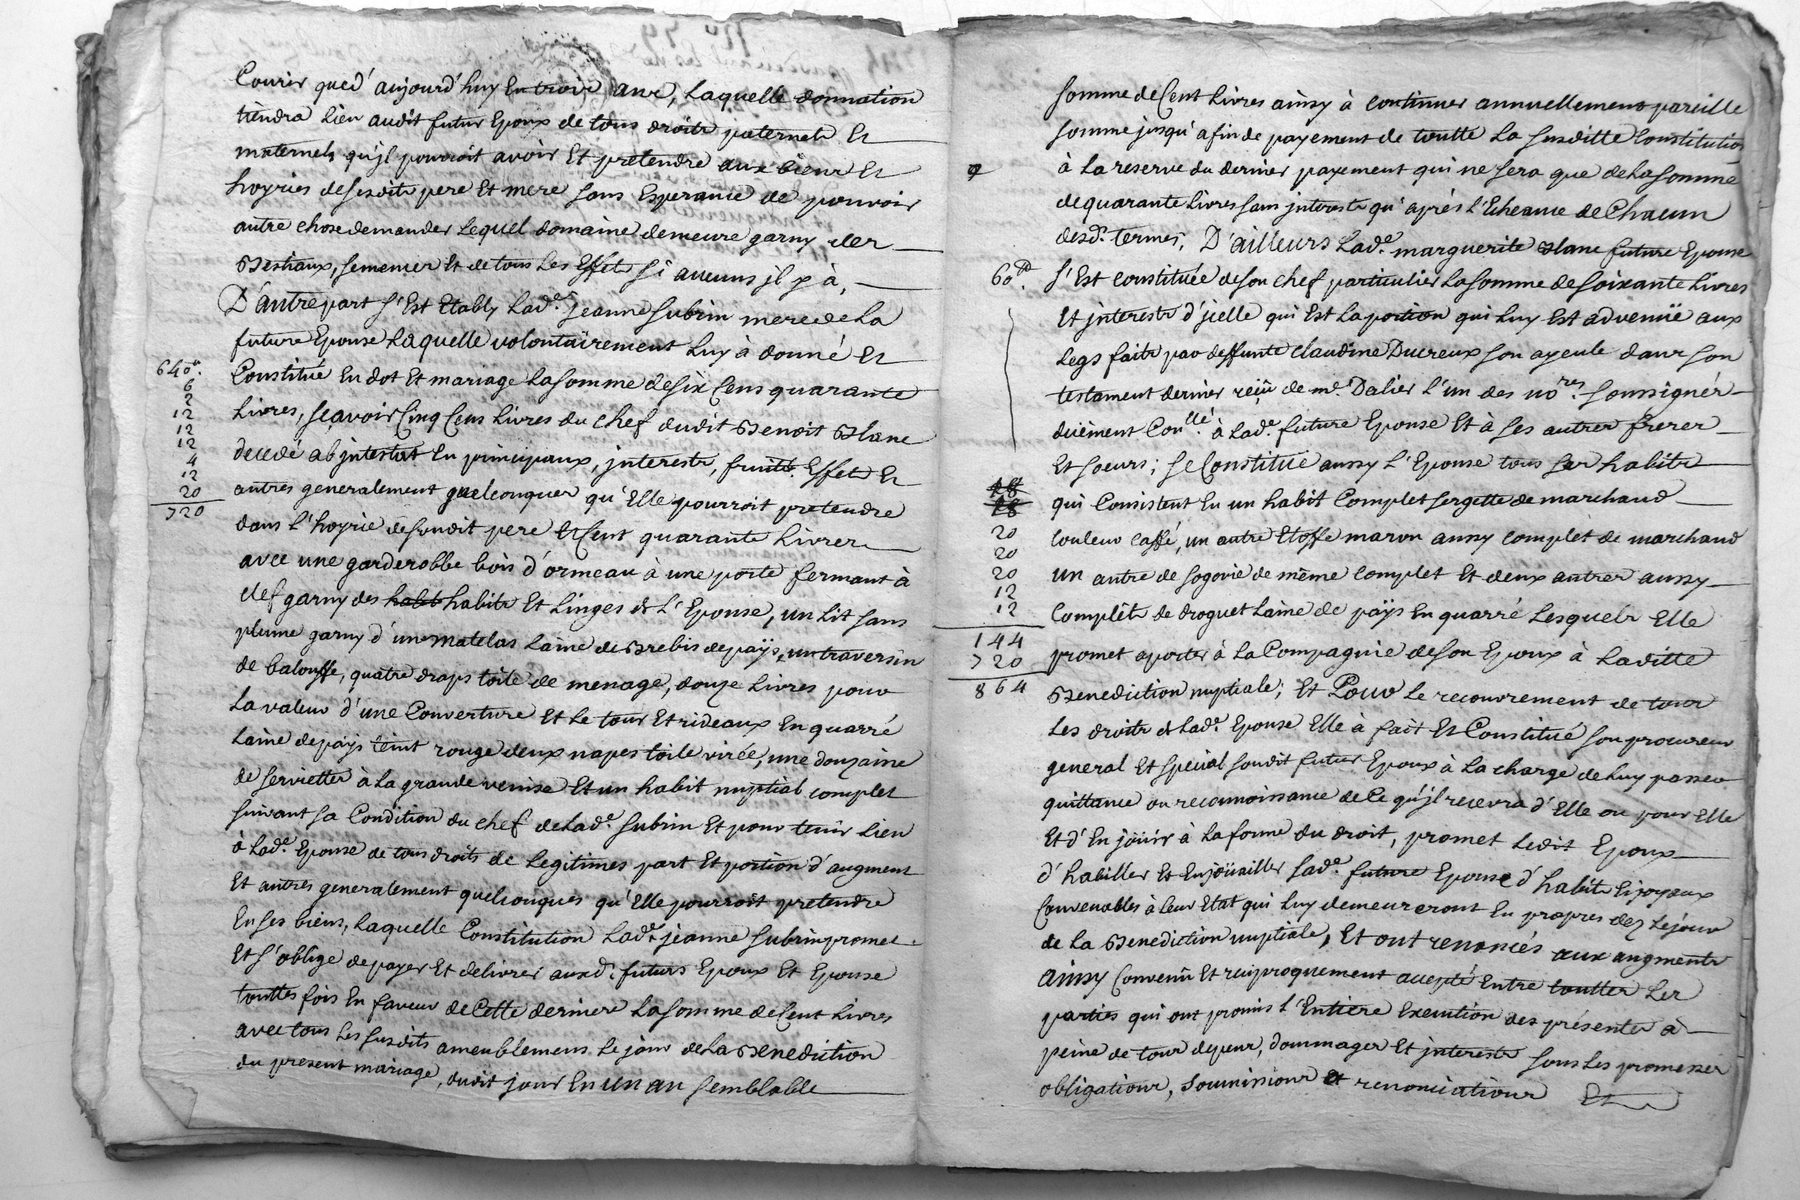 Courir qued' aujourd'huy En trois ans, Laquelle donnation
tiendra Lieu audit futur Epoux de tous droits paternels Et
maternels qu'jl pourroit avoir Et pretendre aux biens Et
hoyries desesdits pere Et mere sans Esperance de pouvoir
autre chose demander Lequel domaine demeure garny der
Bestiaux, semences Et de tous Les Effets si aucuns jl y à,
D'autrepart s'Est Etably Lad.e Jeanne Subrin mere de La
future Epouse Laquelle volontairement Luy à donné Et
640.tt Constitué En dot Et mariage La somme de six Cens quarante
6
2
12 Livres, sçavoir Cinq Cens Livres du chef dudit Benoit Blanc
12
12 decedé ab jntestat En principaux, jnterests, fruits Effets Et
4
12
20 autres generalement quelconques qu'Elle pourroit pretendre
720 dans l'hoyrie de sondit pere Et Cent quarante Livres
avec une garderobbe bois d'ormeau à une porte fermant à
clef garny des habit habits Et Linges de L'Epouse, un Lit sans
plume garny d'un matelas Laine de Brebis de païs, un traversin
de balouffe, quatre draps toile de menage, douze Livres pour
La valeur d'une Couverture Et Le tour Et rideaux En quarré
Laine de païs teint rouge deux napes toile virée, une douzaine
de serviettes à La grande venise Et un habit nuptial complet
suivant sa Condition du chef de Lad.e Subrin Et pour tenir Lieu
à Lad.e Epouse de tous droits de Legitimes part Et portion d'augment
Et autres generalement quelconques qu'Elle pourroit pretendre
En ses biens, Laquelle Constitution Lad.e jeanne Subrin promet
Et s'oblige de payer Et delivrer auxd. futurs Epoux Et Epouse
touttes fois En faveur de Cette derniere La somme de Cent Livres
avec tous Les susdits ameublemens Le jour de La Benediction
du present mariage, dudit jour En un an semblable
somme de Cent Livres ainsy à continuer annuellement pareille
somme jusqu'a fin de payement de toutte La susditte Constitution
à La reserve du dernier payement qui ne sera que de La somme
de quarante Livres sans jnterests qu'après l'Echeance de Chacun
desd. termes. D'ailleurs Lad.e marguerite Blanc future Epouse
60.tt s'Est constituée de son chef particulier La somme de soixante Livres
Et jnterests d'jcelle qui Est La portion qui Luy Est advenüe aux
Legs faits par deffunte Claudine Ducreux son ayeule dans son
testament dernier reçû de me. Dalier l'un des no.res soussignés
düement Con.llé à Lad.e future Epouse Et à ses autres freres
Et soeurs; se Constitüe aussy l'Epouse tous ses habits
18
18 qui Consistent En un habit Complet sergette de marchand
20
20 couleur caffé, un autre Etoffe maron aussy complet de marchand
20 un autre de sogovie de même complet Et deux autres aussy
12
12 complets de droguet Laine de païs En quarré Lesquels Elle
144
720 promet aporter à La Compagnie de son Epoux à Laditte
864 Benediction nuptiale; Et Pour Le recouvrement de tous
Les droits de Lad.e Epouse Elle à fait Et Constitué son procureur
general Et special sondit futur Epoux à La charge de Luy passer
quittance ou reconnoissance de Ce qu'jl recevra d'Elle ou pour Elle
Et d'En joüir à La forme du droit, promet Ledit Epoux
d'habiller Et Enjoüailler Lad.e future Epouse d'habits Bijoyaux
Convenables à Leur Etat qui Luy demeureront En propres dez Le jour
de La Benediction nuptiale, Et ont renoncés aux augments
ainsy Convenu Et reciproquement accepté Entre touttes Les
parties qui ont promis l'Entiere Execution des présentes à
peine de tous depens, dommages Et jnterests sous Les promesses
obligations, soumissions et renonciations Et